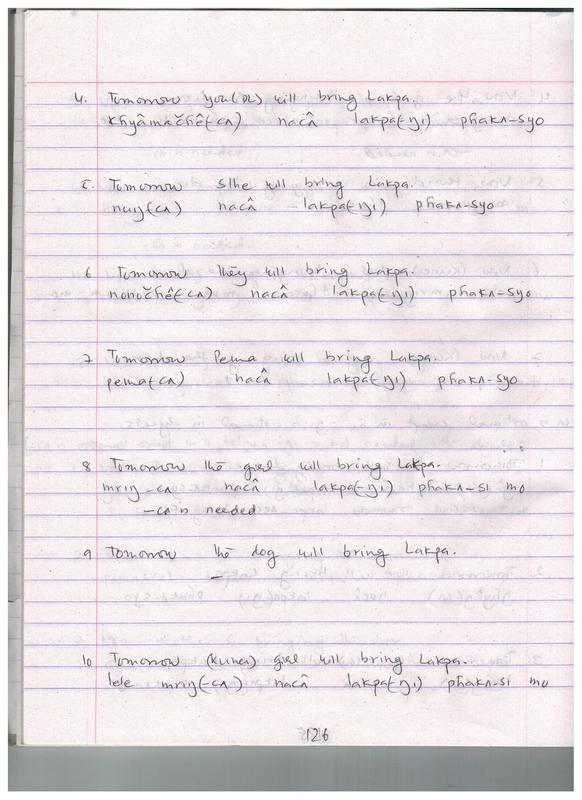 4. Tomorrow you(pl) will bring Lakpa.
khyâmačhê(-cʌ) nacʌ̂ lakpa(-ŋı) phakʌ-syo
5. Tomorrow s/he will bring Lakpa.
nuŋ(-cʌ) nacʌ̂ -lakpa(-ŋı) phakʌ-syo
6 Tomorrow they will bring Lakpa.
nonočhê(-cʌ) nacʌ̂ lakpa(-ŋı) phakʌ-syo
7 Tomorrow Pema will bring Lakpa.
pema(-cʌ) nacʌ̂ lakpa(-ŋı) phakʌ-syo
8 Tomorrow the girl will bring Lakpa.
mrıŋ-cʌ nacʌ̂ lakpa(-ŋı) phakʌ-sı mo
-cʌ is needed
9 Tomorrow the dog will bring Lakpa.
—
10 Tomorrow girl will bring Lakpa.
lele mrıŋ(-cʌ) nacʌ̂ lakpa(-ŋı) phakʌ-sı mo
126